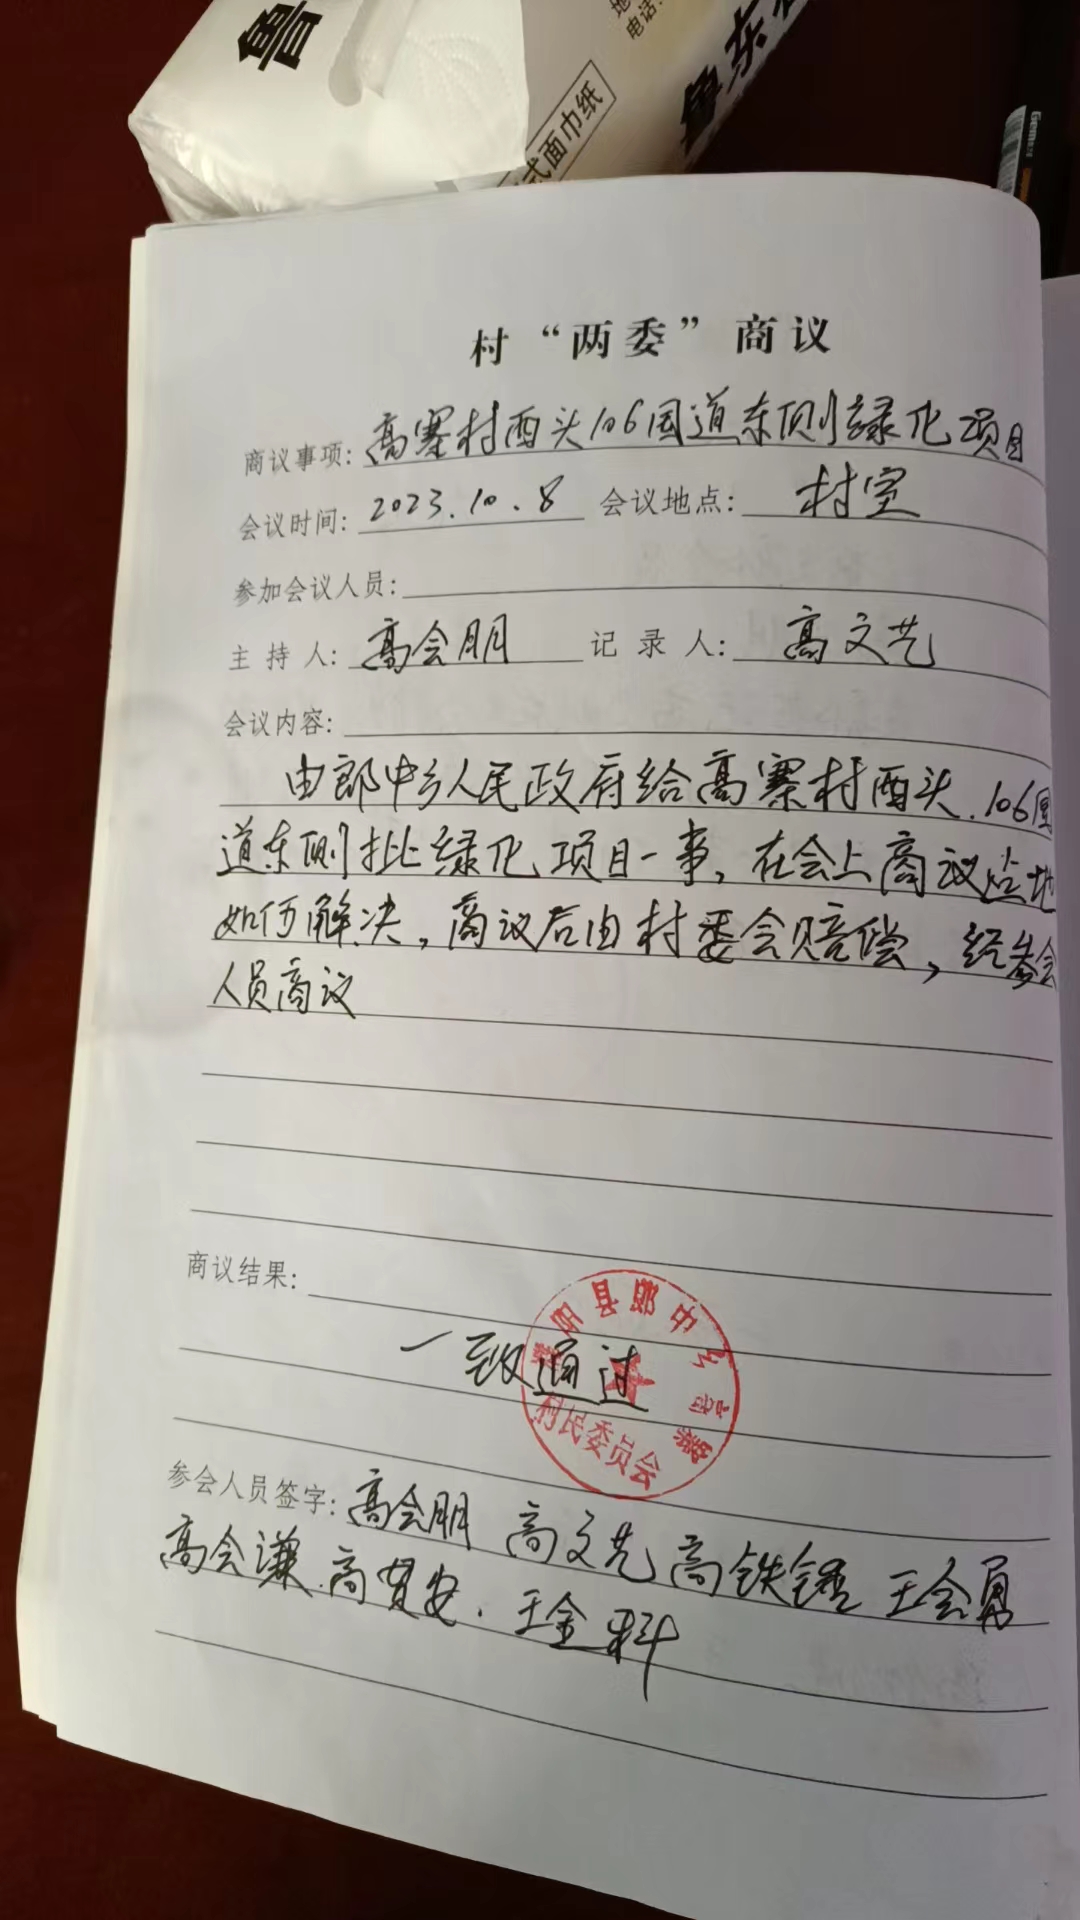 鲁
地
电话:
鲁东
式面巾纸
村“两委”商议
商议事项: 高寨村西头106国道东侧绿化项目
会议时间: 2023.10.8 会议地点: 村室
参加会议人员:
主持人: 高会朋 记录人: 高文艺
会议内容:
由郎中乡人民政府给高寨村西头.106国
道东侧批绿化项目一事,在会上商议占地
如何解决,商议后由村委会赔偿,经参会
人员商议
商议结果:
一致通过
阳县郎中乡高寨
村民委员会
参会人员签字: 高会朋 高文艺 高铁锤 王会勇
高会谦.高贯安.王金科